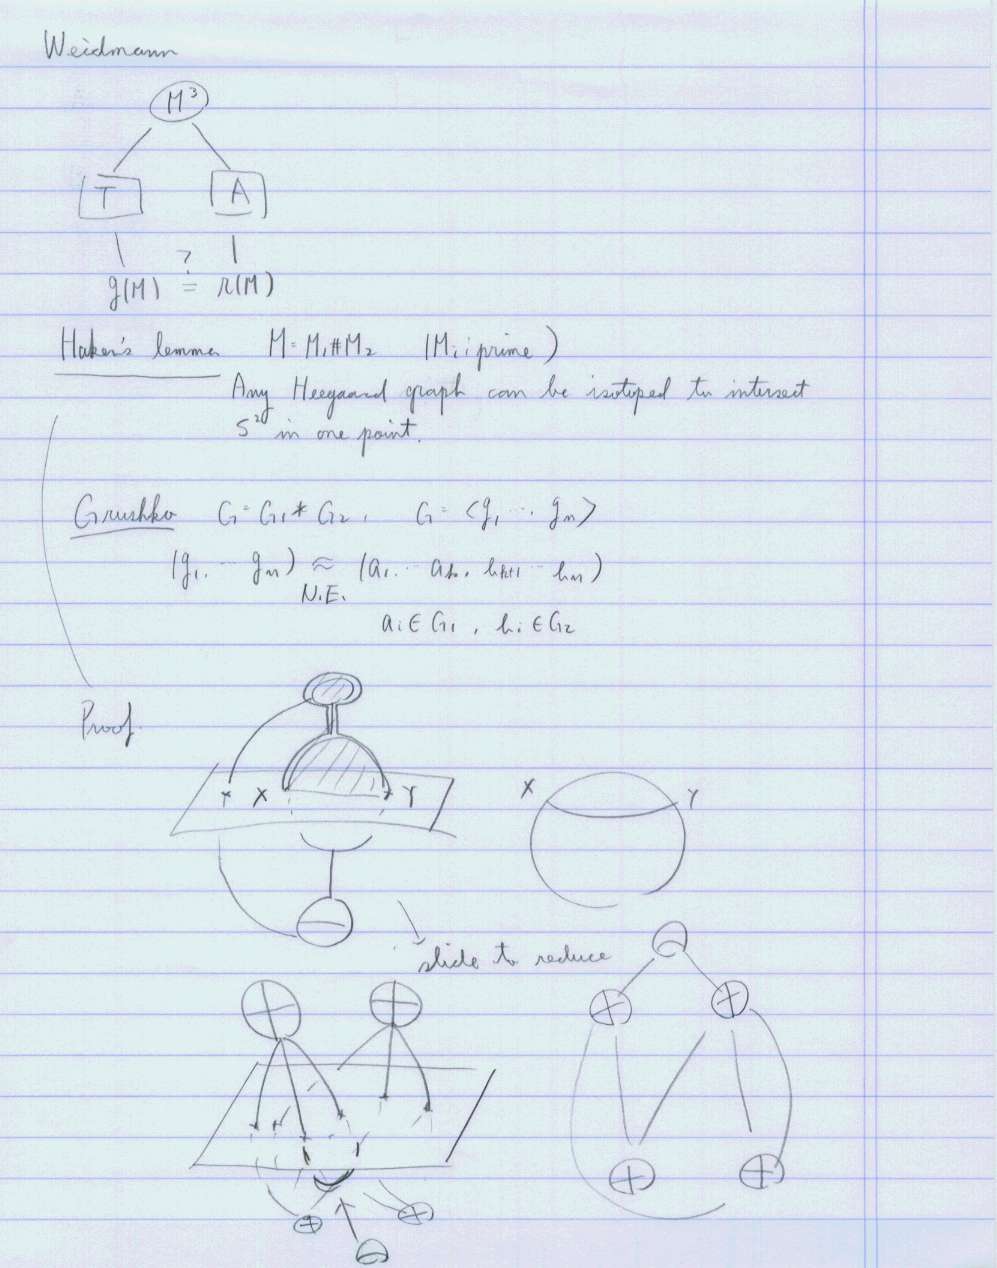 Weidmann
M³
T A
?
g(M) = r(M)
Haken's lemma M = M₁ # M₂ (Mᵢ : prime)
Any Heegaard graph can be isotoped to intersect
S² in one point.
Grushko G = G₁ * G₂, G = <g₁ ... gₙ>
(g₁, ... gₙ) ≈ (a₁, ... aₖ, bₖ₊₁ ... bₙ)
N.E.
aᵢ ∈ G₁, bᵢ ∈ G₂
Proof.
X Y
X Y
slide to reduce